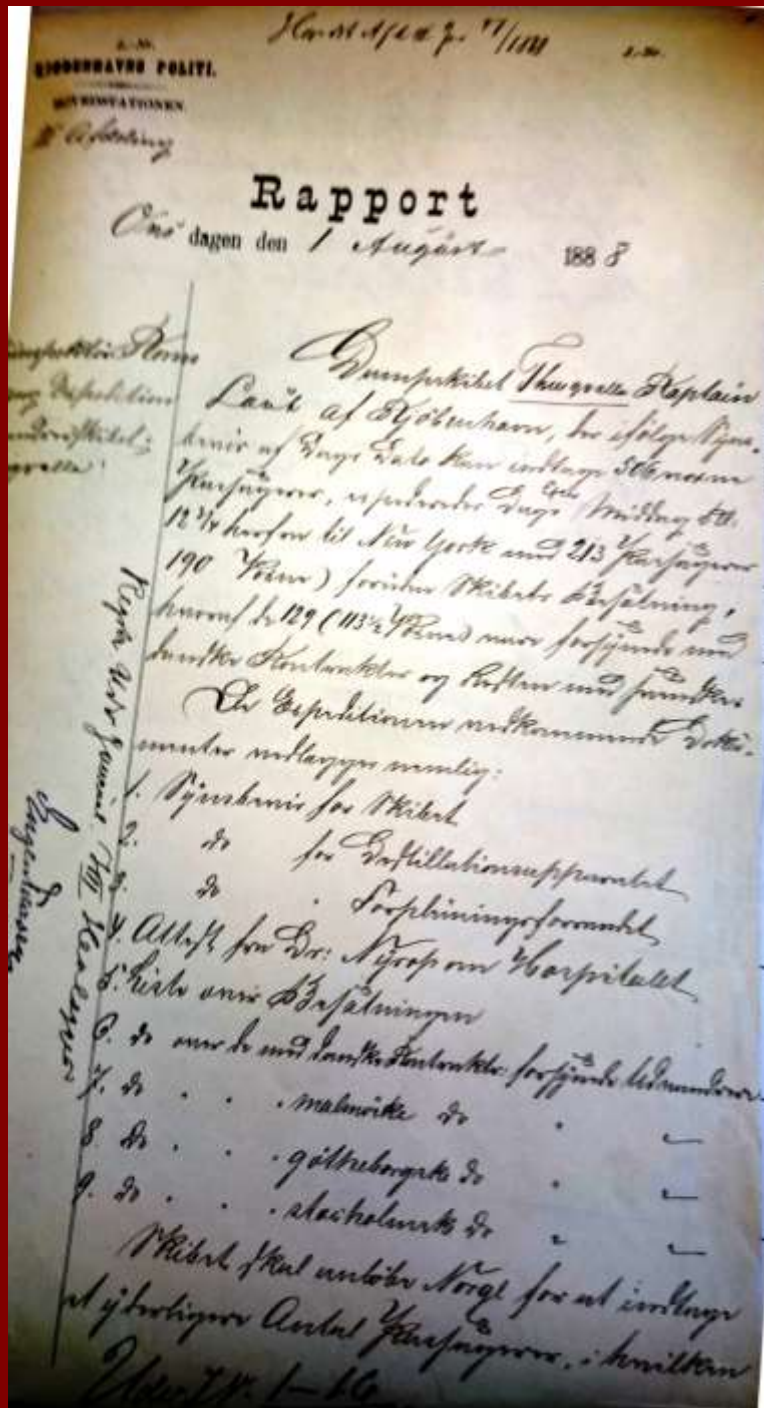 KJØBENHAVNS POLITI.
HOVEDSTATIONEN
Afdeling
Rapport
Ons dagen den 1 August 1888
Dampskibet Thingvalla Kaptain
Laub af Kjøbenhavn, der ifølge Syns-
bevis af Dags Dato kan indtage 506 voxne
Passagerer, expederedes Dags Middag Kl.
12 3/4 herfra til New York med 213 Passagerer
190 Voxne) foruden Skibets Besætning,
hvoraf de 129 (113 1/2 Voxne) vare forsynede med
danske Kontrakter og Resten med svenske
De Expeditionen vedkommende Doku-
menter vedlægges nemlig:
1. Synsbevis for Skibet
2. do for Destillationsapparatet
3. do " Forplejningsforraadet
4. Attest fra Dr: Nyrop om Hospitalet
5. Liste over Besætningen
6. do over de med danske Kontrakter forsynede Udvandrere
7. do " " " malmöske do " "
8 do " " " götheborgske do " "
9. do " " " stockholmske do " "
Skibet skal anløbe Norge for at indtage
et yderligere Antal Passagerer, i hvilken